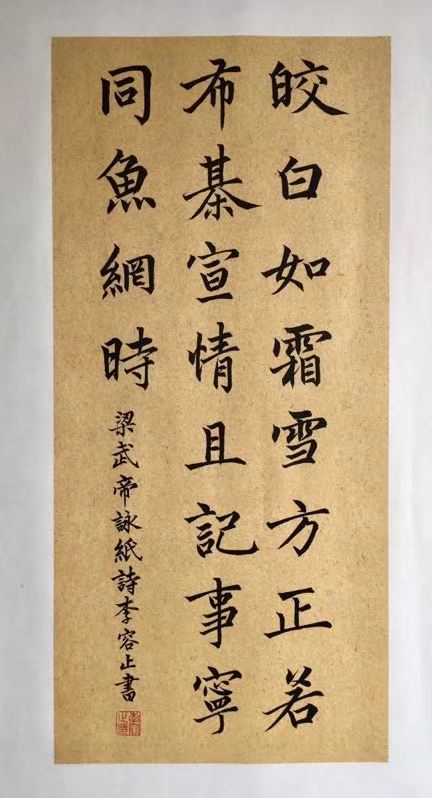 皎白如霜雪方正若
布棊宣情且記事寧
同魚網時
梁武帝詠紙詩李容止書